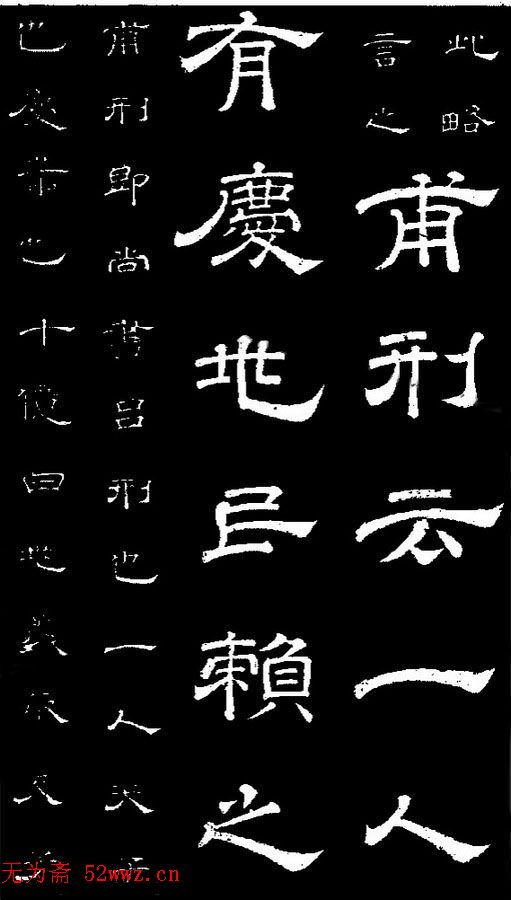 此略
言之
甫刑云一人
有慶兆民賴之
甫刑即尚書呂刑也一人天子
也慶善也十億曰兆義取天子
无为斋 52wwz.cn